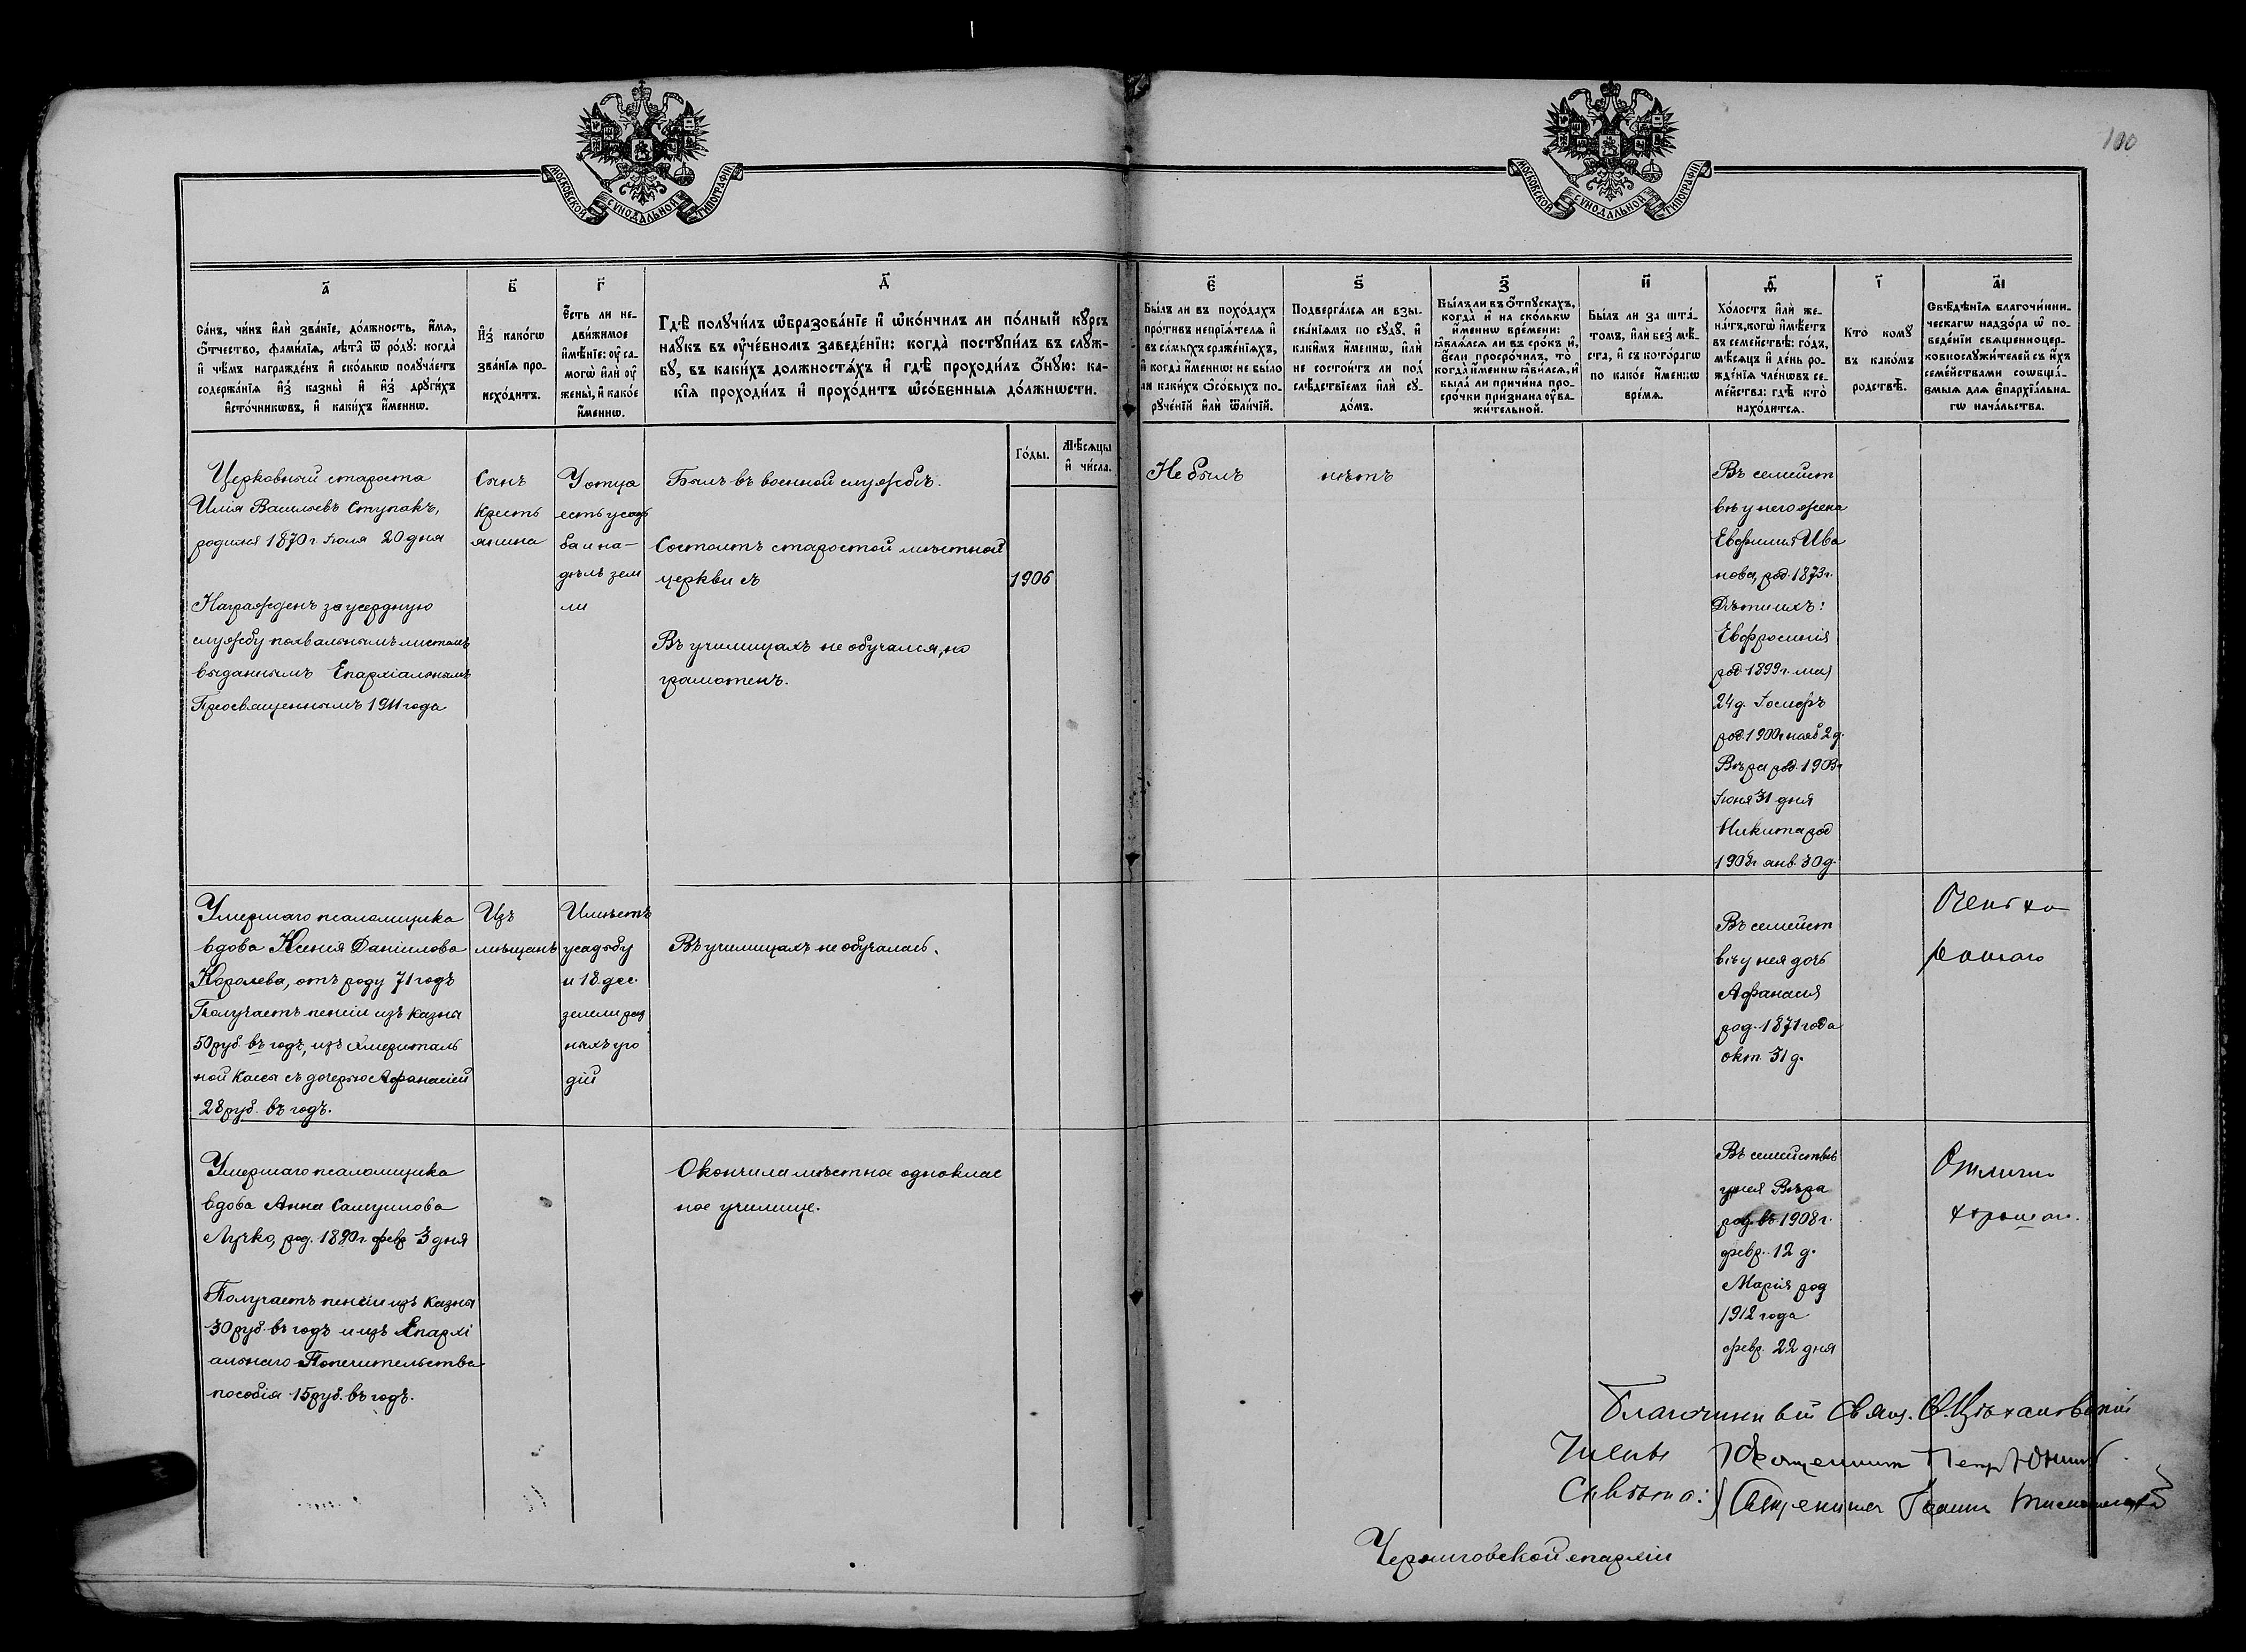 100
МОСКОВСКОЙ СУНОДАЛЬНОЙ ТИПОГРАФІИ
МОСКОВСКОЙ СУНОДАЛЬНОЙ ТИПОГРАФІИ
а҃
Са́нъ, чи́нъ и҆лѝ зва́нїе, до́лжность, и҆́мѧ,
ѻ҆́тчество, фами́лїѧ, лѣ́та ѿ ро́дꙋ: когда̀
и҆ чѣ́мъ награжде́нъ и҆ ско́лькѡ полꙋча́етъ
содержа́нїѧ и҆з̾ казны̀ и҆ и҆з̾ дрꙋги́хъ
и҆сто́чникѡвъ, и҆ каки́хъ и҆́меннѡ.
в҃
И҆з̾ како́гѡ
зва́нїѧ про-
исхо́дитъ.
г҃
Е҆́сть ли не-
дви́жимое
и҆мѣ́нїе: ᲂу҆ са-
могѡ̀ и҆лѝ ᲂу҆
жены̀, и҆ како́е
и҆́меннѡ.
д҃
Гдѣ̀ полꙋчи́лъ ѡ҆бразова́нїе и҆ ѡ҆ко́нчилъ ли по́лный кꙋ́рсъ
наꙋ́къ въ ᲂу҆че́бномъ заведе́нїи: когда̀ постꙋпи́лъ въ слꙋ́ж-
бꙋ, въ каки́хъ должностѧ́хъ и҆ гдѣ̀ проходи́лъ ѻ҆́нꙋю: ка-
кі̑ѧ проходи́лъ и҆ прохо́дитъ ѡ҆со́бенныѧ до́лжнѡсти.
Го́ды.
Мѣ́сѧцы
и҆ чи́сла.
є҃
Бы́лъ ли въ похо́дахъ
про́тивъ непрїѧ́телѧ и҆
въ са́мыхъ сраже́нїѧхъ,
и҆ когда̀ и҆́меннѡ: не бы́ло
ли каки́хъ ѻ҆со́быхъ по-
рꙋче́нїй и҆лѝ ѿли́чїй.
ѕ҃
Подверга́лсѧ ли взы-
ска́нїѧмъ по сꙋдꙋ̀, и҆
каки̑мъ и҆́меннѡ, и҆лѝ
не состои́тъ ли под̾
слѣ́дствїемъ и҆лѝ сꙋ-
до́мъ.
з҃
Бы́лъ ли въ ѻ҆́тпꙋскахъ,
когда̀ и҆ на ско́лькѡ
и҆́меннѡ вре́мени:
ꙗ҆влѧ́лсѧ ли въ сро́къ и҆,
є҆́сли просро́чилъ, то̀
когда̀ и҆́меннѡ ꙗ҆ви́лсѧ, и҆
была̀ ли причи́на про-
сро́чки при́знана ᲂу҆ва-
жи́тельной.
и҃
Бы́лъ ли за шта́-
томъ, и҆лѝ без̾ мѣ́-
ста, и҆ съ кото́рагѡ
по како́е и҆́меннѡ
вре́мѧ.
ѳ҃
Хо́лостъ и҆лѝ же-
на́тъ, когѡ̀ и҆мѣ́етъ
въ семе́йствѣ: го́дъ,
мѣ́сѧцъ и҆ де́нь ро-
жде́нїѧ чле́нѡвъ се-
ме́йства: гдѣ̀ кто̀
нахо́дитсѧ.
і҃
Кто̀ комꙋ̀
въ како́мъ
родствѣ̀.
а҃і
Свѣ́дѣнїѧ благочи́нни-
ческагѡ надзо́ра ѡ҆ по-
веде́нїи свѧщенноцер-
ковнослꙋжи́телей съ и҆́хъ
семе́йствами соѡбща́-
ємыѧ длѧ є҆парха́льна-
гѡ нача́льства.
Церковный староста
Илія Васильевъ Ступакъ,
родился 1870 г. Іюля 20 дня
Награжденъ за усердную
службу похвальнымъ листомъ
выданнымъ Епархіальнымъ
Преосвященнымъ 1911 года
Сынъ
кресть
янина
У отца
есть усадь
ба и на-
дѣлъ зем
ли
Былъ въ военной службѣ.
Состоитъ старостой мѣстной
церкви съ
1906
Въ училищахъ не обучался, но
грамотенъ.
Не былъ
нѣтъ
Въ семейст
вѣ у него жена
Евфимія Ива
нова, род. 1873 г.
Дѣти ихъ:
Евфросинія
род. 1899 г. мая
24 д. Іосифъ
род. 1900 г. нояб 2 д.
Вѣра род. 1903 г
Іюня 31 дня
Никита род
1908 г. янв. 30 д.
Умершаго псаломщика
вдова Ксенія Даніилова
Королева, отъ роду 71 годъ
Получаетъ пенсіи изъ казны
50 руб. въ годъ, изъ Эмериталь
ной Кассы съ дочерью Афанасіей
28 руб. въ годъ.
Изъ
мѣщанъ
Имѣетъ
усадьбу
и 18 дес.
земли раз
ныхъ уго
дій
Въ училищахъ не обучалась.
Въ семейст
вѣ у нея дочь
Афанасія
род. 1871 года
окт. 31 д.
Очень хо
рошаго
Умершаго псаломщика
вдова Анна Самуилова
Лучко, род. 1890 г. февр 3 дня
Получаетъ пенсіи изъ казны
30 руб. въ годъ и изъ Епархі
альнаго Попечительства
пособія 15 руб. въ годъ.
Окончила мѣстное одноклас
ное училище.
Въ семействѣ
у нея Вѣра
род. въ 1908 г.
февр. 12 д.
Марія род
1912 года
февр. 22 дня
Отлично
хорошаго.
Благочинный Свящ.
Члены Священник Петр
Совѣта: Священникъ Іоаннъ
Черниговской епархіи